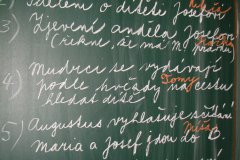 2) Sdělení o dítěti Josefovi
3) Zjevení anděla Josefovi
(řekne, že má M.
4) Mudrci se vydávají
podle hvězdy na cestu Tomy
hledat dítě
5) Augustus vyhlašuje sčítání
Maria a Josef jdou do B.